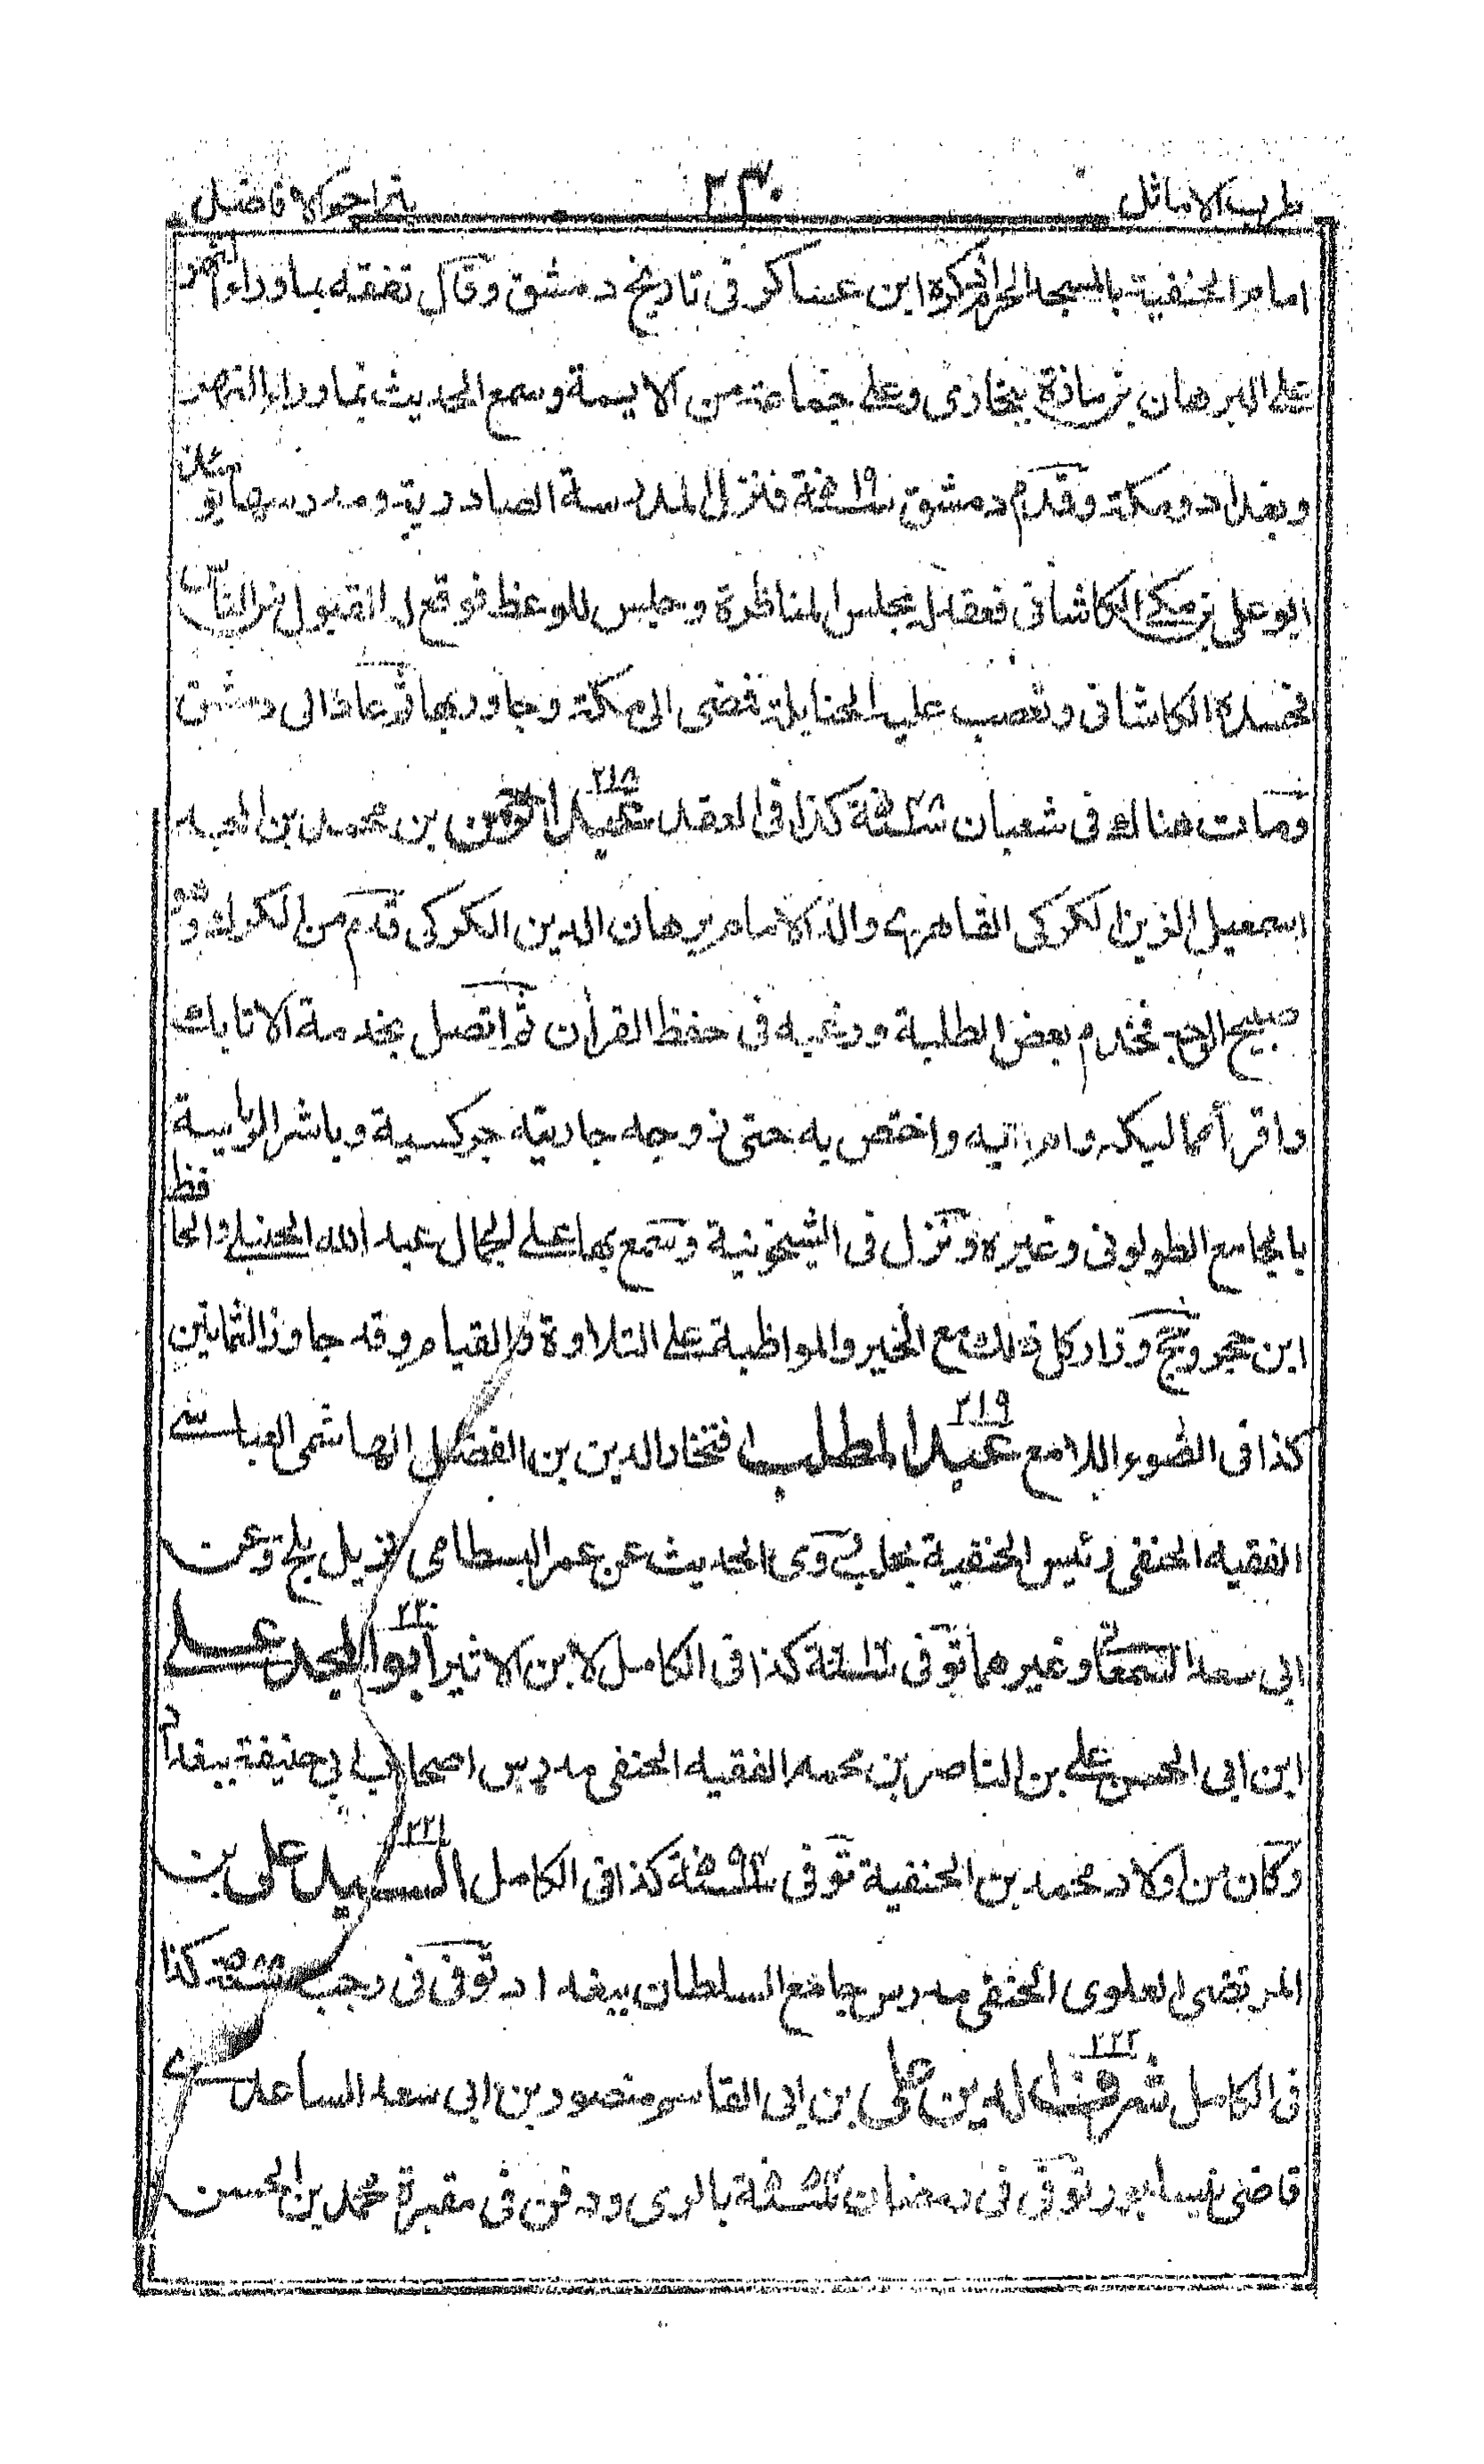 طرب الاماثل ٢٣٠ بتراجم الافاضل
امام الحنفية بالمسجد الحرام ذكره ابن عساكر فى تاريخ دمشق وقال تفقه بماوراء النهر
على البرهان بن مازة ببخارى وعلى جماعة من الايمة وسمع الحديث بماوراء النهر
وبغداد ومكة وقدم دمشق ٥١٩ فنزل المدرسة الصادرية ومدرسها يومئذ
ابو على بن مكى الكاشانى فعقد له مجلس المناظرة وجلس للوعظ فوقع له القبول من الناس
فحسده الكاشانى وتعصب عليه الحنابلة فمضى الى مكة وجاور بها ثم عاد الى دمشق
ومات هناك فى شعبان كذا فى العقد ٢١٨ عبد الرحمن بن محمد بن المجد
اسمعيل الزين الكركى القاهرى والد الامام برهان الدين الكركى قدم من الكرك وهو
صبيح الوجه فخدم بعض الطلبة ورغبه فى حفظ القرأن ثم اتصل بخدمة الاتابك
واقرأ مماليكه وامراتيه واختص به حتى زوجه جاريته جركسية وباشر الرياسة
بالجامع الطولونى وغيره وتنزل فى الشيخونية وسمع بها على الجمال عبد الله الحنبلى والحافظ
ابن حجر وحج وزار كل ذلك مع الخير والمواظبة على التلاوة والقيام وقد جاوز الثمانين
كذا فى الضوء اللامع ٢١٩ عبد المطلب افتخار الدين بن الفضل الهاشمى العباسى
الفقيه الحنفى رئيس الحنفية بحلب روى الحديث عن عمر البسطامى نزيل بلخ وعن
ابى سعد السمعانى وغيرهما توفى كذا فى الكامل لابن الاثير ٢٢٠ ابو المجد على
ابن ابى الحسن على بن الناصر بن محمد الفقيه الحنفى مدرس اصحاب ابى حنيفة ببغداد
وكان من اولاد محمد بن الحنفية توفى كذا فى الكامل ٢٢١ السيد على بن
المرتضى العلوى الحنفى مدرس جامع السلطان ببغداد توفى فى رجب كذا
فى الكامل ٢٢٢ شرف الدين على بن ابى القاسم منصور بن ابى سعد الساعدى
قاضى نيسابور توفى فى رمضان بالرى ودفن فى مقبرة محمد بن الحسن